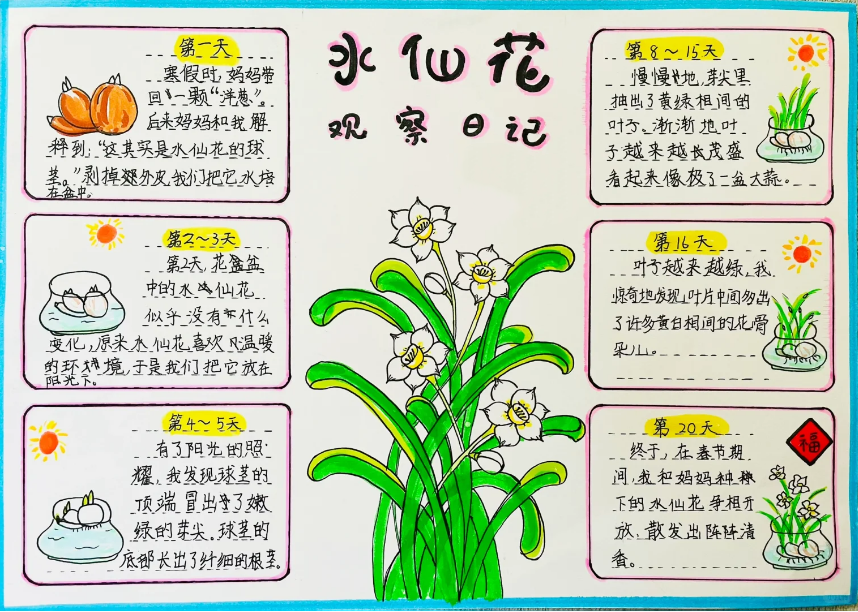 水仙花
观察日记
第一天
寒假时,妈妈带
回一颗“洋葱”。
后来妈妈和我解
释到:“这其实是水仙花的球
茎。”剥掉外皮,我们把它水培
在盆中。
第2~3天
第2天,花盆
中的水仙花
似乎没有什么
变化,原来水仙花喜欢温暖
的环境,于是我们把它放在
阳光下。
第4~5天
有了阳光的照
耀,我发现球茎的
顶端冒出了嫩
绿的芽尖。球茎的
底部长出了纤细的根茎。
第8~15天
慢慢地,芽尖里
抽出了黄绿相间的
叶子。渐渐地叶
子越来越长茂盛
看起来像极了一盆大蒜。
第16天
叶子越来越绿,我
惊奇地发现,叶片中间多出
了许多黄白相间的花骨
朵儿。
第20天
终于,在春节期
间,我和妈妈种
下的水仙花争相开
放,散发出阵阵清
香。
福